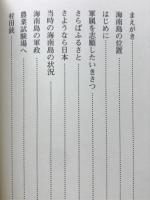 まえがき
海南島の位置
はじめに
軍属を志願したいきさつ
さらばふるさと
さようなら日本
当時の海南島の状況
海南島の軍政
農業試験場へ
村田銃